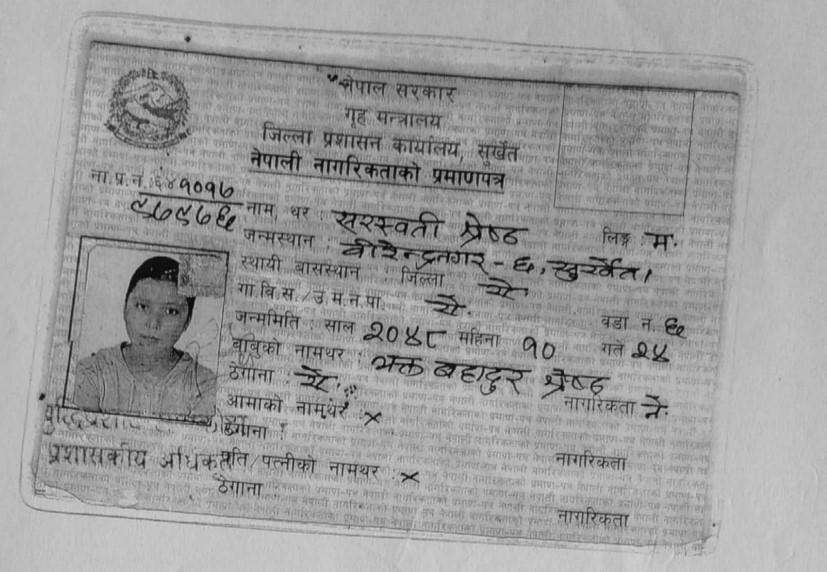 नेपाल सरकार
गृह मन्त्रालय
जिल्ला प्रशासन कार्यालय, सुर्खेत
नेपाली नागरिकताको प्रमाणपत्र
ना.प्र.नं. ६४१०१७
नाम, थर : सरस्वती श्रेष्ठ लिङ्ग : म.
जन्मस्थान : वीरेन्द्रनगर - ६, सुर्खेत।
स्थायी बासस्थान जिल्ला ऐ.
गा.वि.स./उ.म.न.पा. ऐ. वडा नं. ६
जन्ममिति : साल २०४८ महिना १० गते २४
बाबुको नामथर : भक्त बहादुर श्रेष्ठ
ठेगाना : ऐ. नागरिकता ने.
आमाको नामथर : x
ठेगाना :
नागरिकता
प्रशासकीय अधिकृत
पति/पत्नीको नामथर x
ठेगाना
नागरिकता